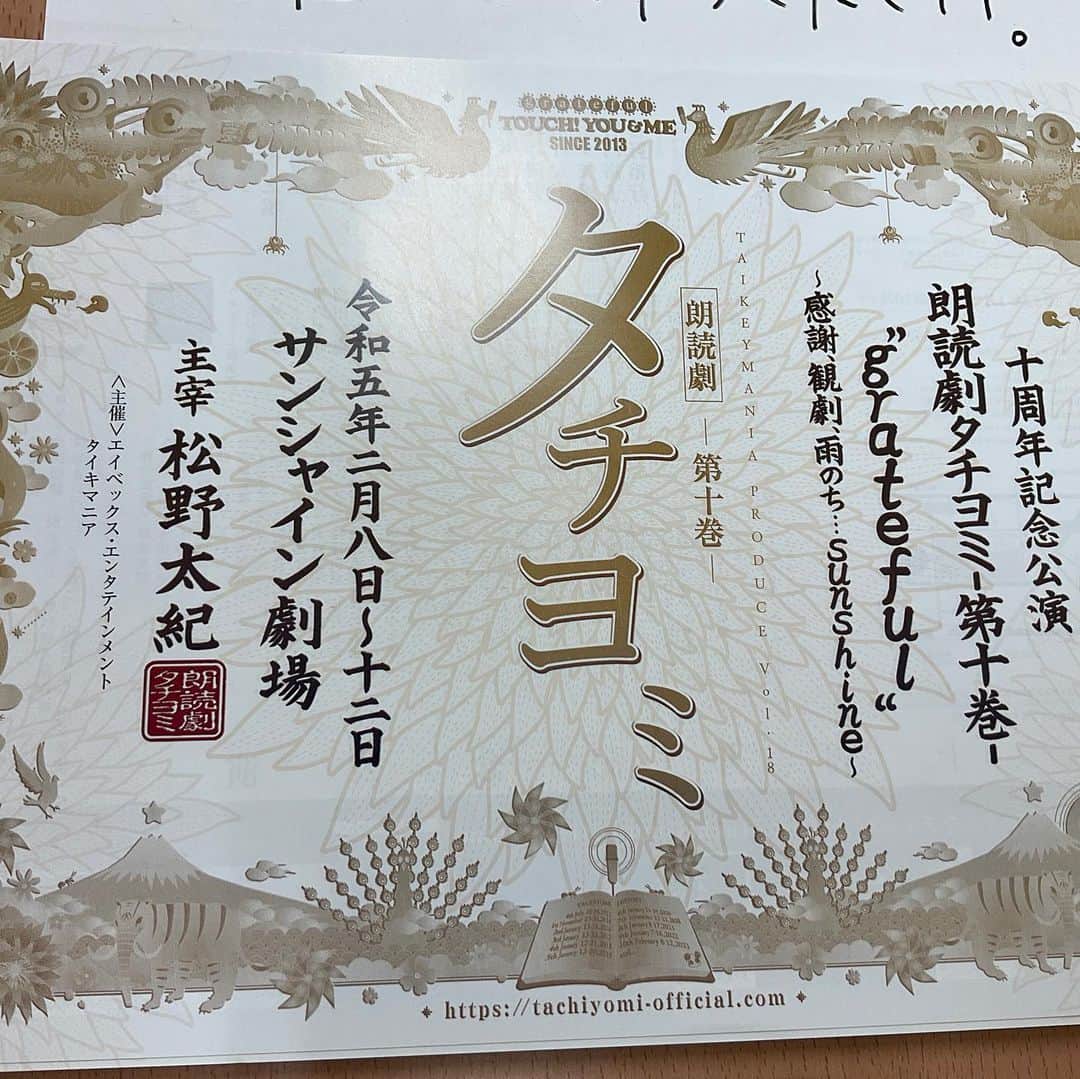 grateful
TOUCH! YOU&ME
SINCE 2013
十周年記念公演
朗読劇タチヨミ-第十巻-
"grateful"
～感謝、観劇、雨のち…sunshine～
TAIKEYMANIA PRODUCE Vol.18
朗読劇 ―第十巻―
タチヨミ
令和五年二月八日～十二日
サンシャイン劇場
主宰 松野太紀
朗読劇
タチヨミ
＜主催＞エイベックス・エンタテインメント
タイキマニア
https://tachiyomi-official.com